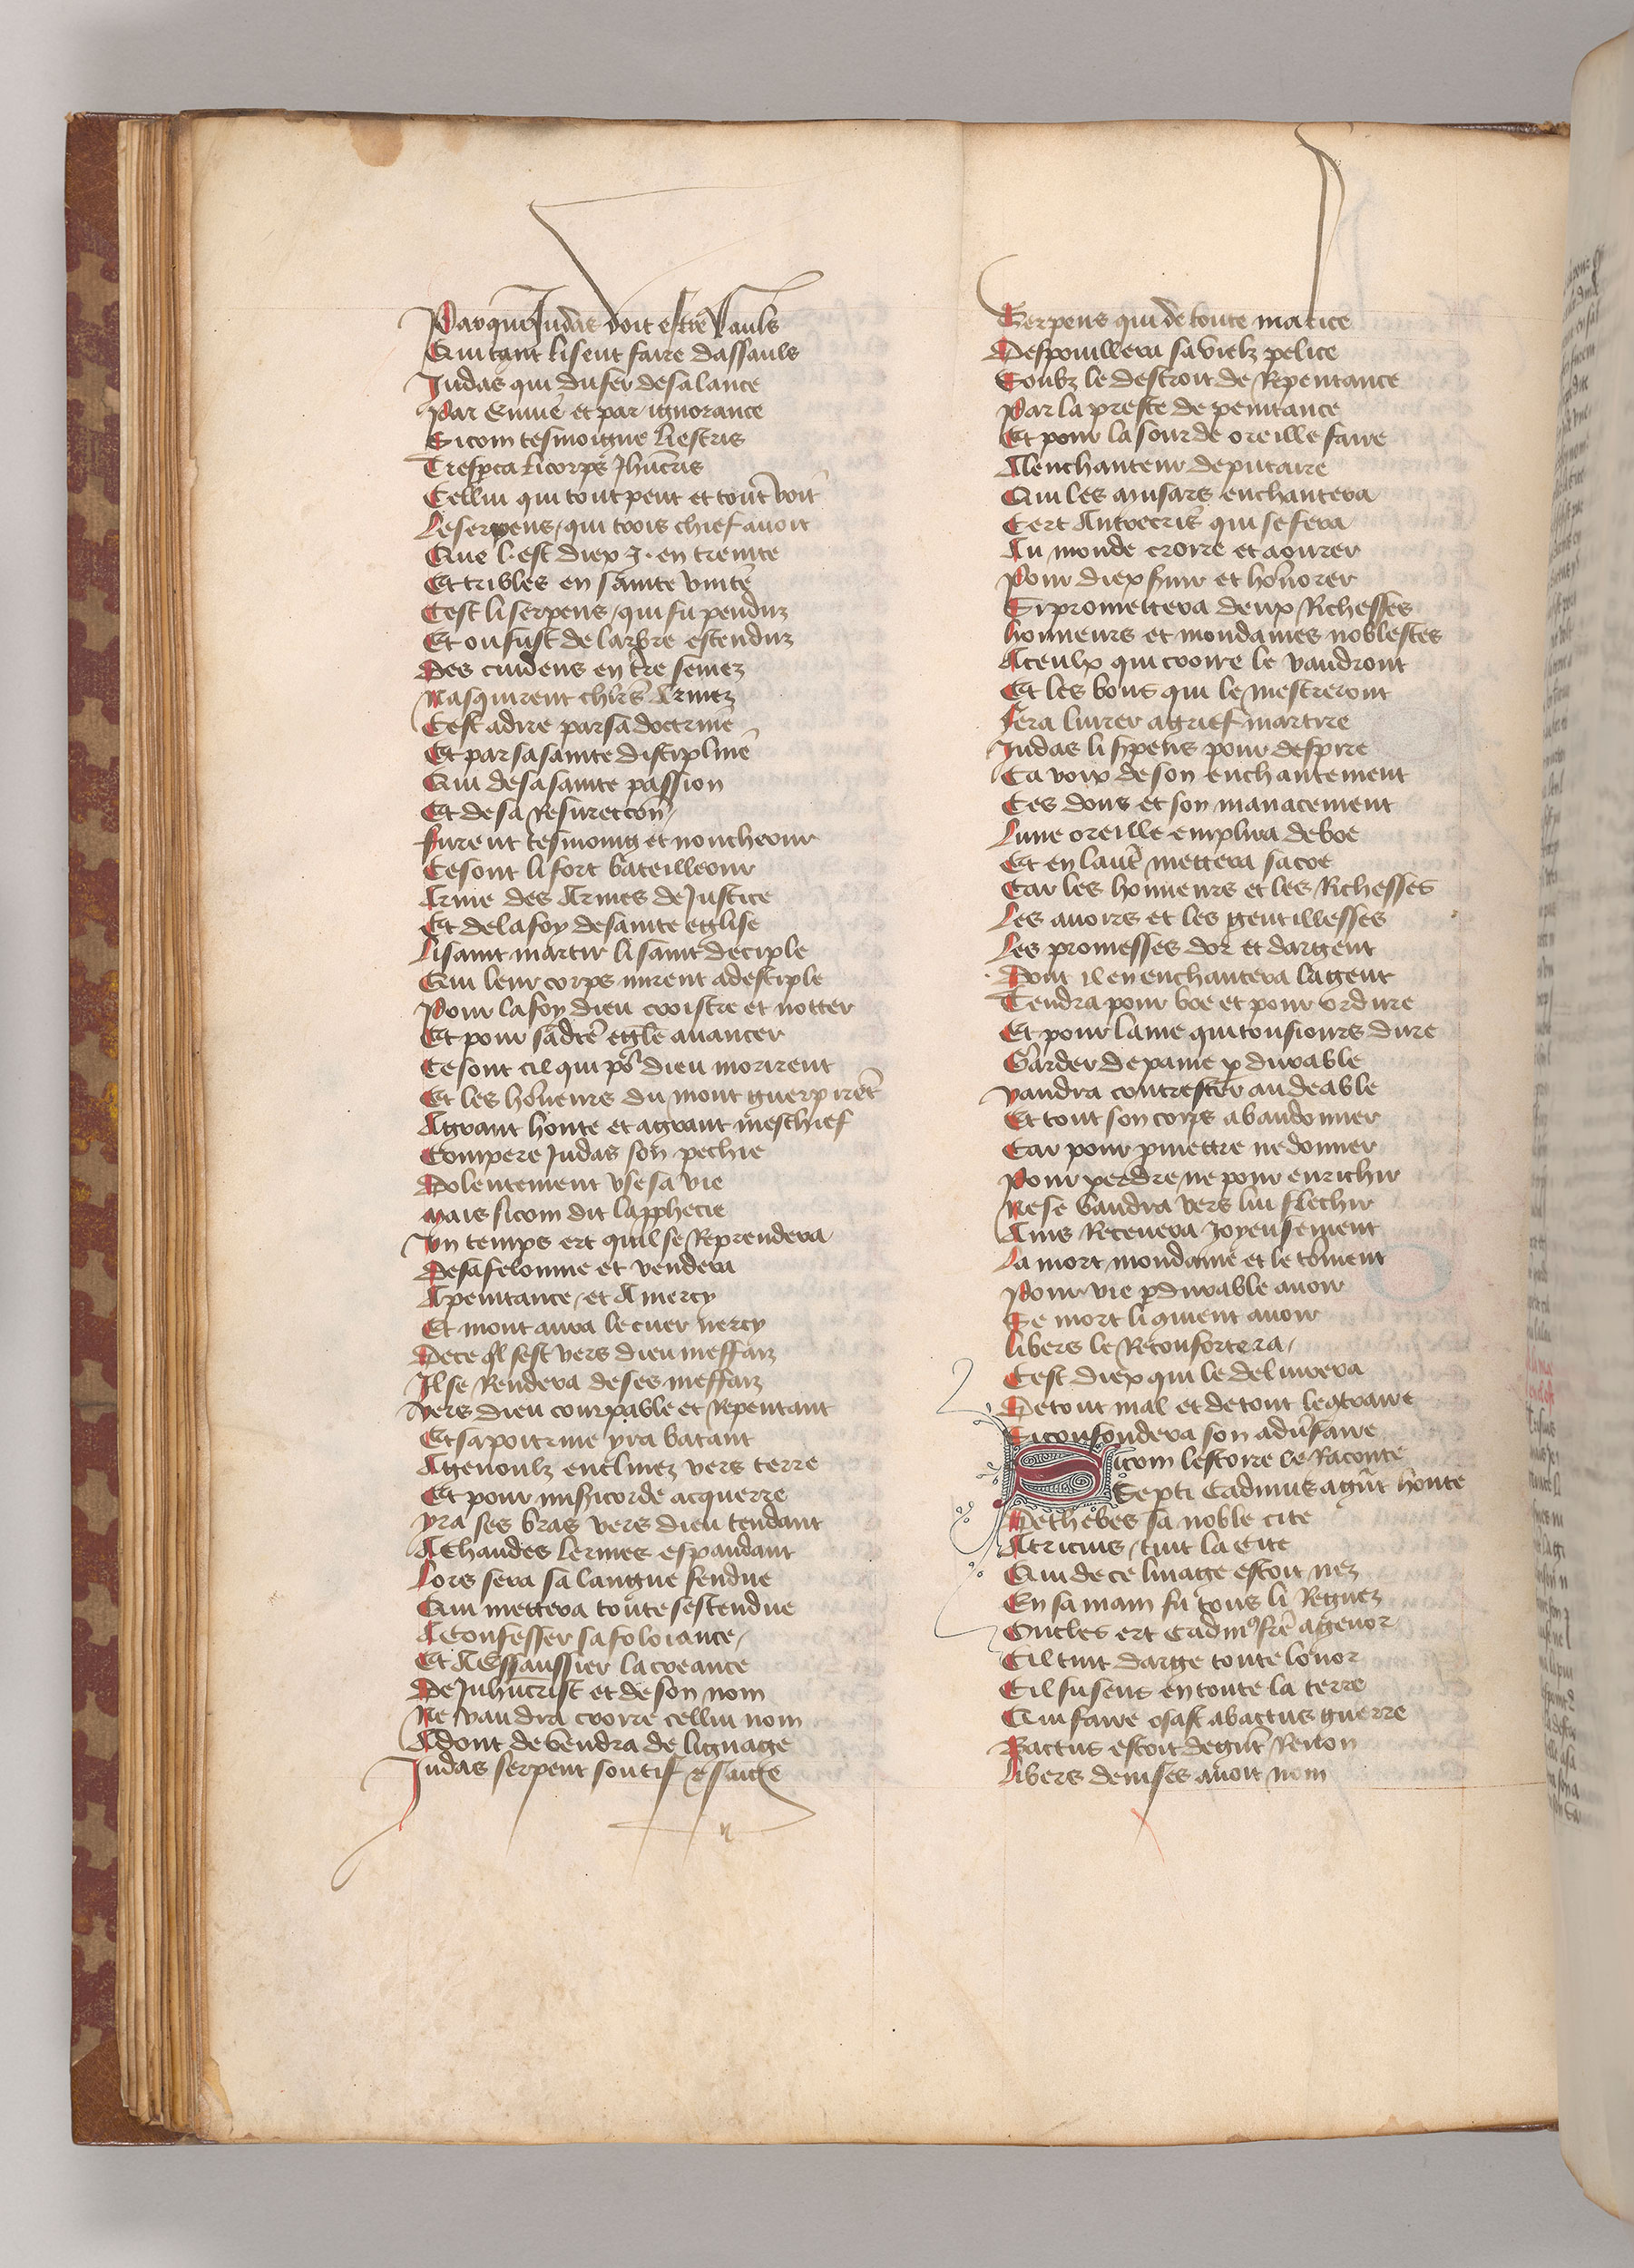 Par qui Judas doit estre saulz
Qui tant li seut faire dassaulz
Judas qui du fer de sa lance
Par Enuie et par ignorance
Sicom tesmoigne liestris
Tresperca li corps Jhucris
Cellui qui tout peut et tout voit
Le serpens qui trois chief auoit
Que .l. est diex .3. en trenite
Et tribles en sainte vnite
Cest li serpens qui fu penduz
Et ou fust de larbre estenduz
Des cuidens en tre semez
Nasquirent chlrs Armez
Cest adire par sa doctrine
Et par sa sainte discipline
Qui de sa sainte passion
Et de sa Resurection
furent tesmoing et noncheour
Ce sont li fort bateilleour
Arme des Armes de Justice
Et de la foy de sainte eglise
li saint martir li saint deciple
Qui leur corps mirent a desciple
Pour la foy dieu croistre et notter
Et pour sadte eglē auancer
Ce sont cil qui po dieu morirent
Et les honeurs du mont guerpiret
A grant honte et a grant meschief
Compere Judas son pechie
Dolentement vse sa vie
Mais sicom dit la pphecie
Vn temps ert quil se Reprendera
De sa felonnie et vendera
A penitance et A mercy
Et mont aura le cuer nercy
De ce ql sest vers dieu meffaiz
Il se Rendera de ses meffaiz
Vers dieu courpable et Repentant
Et sa poitrine yra batant
A genoulz enclinez vers terre
Et pour misicorde acquerre
yra ses bras vers dieu tendant
A chaudes lermes espandant
Lors sera sa langue fendue
Qui mettera toute sestendue
A Confesser sa foloiance
Et A Essaussier la creance
De Jhucrist et de son nom
Ne vaudra croire cellui nom
Adont deVendra de lignage
Judas serpent soutif &
Serpens qui de toute malice
Despouillera sa vielz pelice
Soubz le destroit de Repentance
Par la presse de penitance
Et pour la sourde oreille faire
A lenchanteur deputaire
Qui les musars enchantera
Cert Antrecris qui se fera
Au monde croire et aourer
Pour diex seruir et honorer
Si promettera deux Richesses
honneurs et mondaines noblesces
A ceulx qui croire le vaudront
Et les bons qui le mescreront
fera liurer a grief martire
Judas li serpens pour despire
La voix de son enchantement
Ces dons et son manacement
Lune oreille emplira de boe
Et en laute mettera sa coe
Car les honneurs et les Richesses
Les auoirs et les gentillesses
Les promesses dor et dargent
Dont il en enchantera la gent
Tendra pour boe et pour ordure
Et pour lame qui tousiours dure
Garder de paine pdurable
Vaudra contrester au deable
Et tout son corps abandonner
Car pour pmettre ne donner
Pour perdre ne pour enrichir
Ne se Vaudra vers lui flechir
Ains Receuera Joyeusement
La mort mondaine et le tōment
Pour vie pdurable auoir
Se mort li quient auoir
libers le Reconfortera
Cest diex qui le deliurera
De tout mal et de tout legtraire
Si confondera son aduersaire
Sicom lestoire le Raconte
Septi Cadmus a gnt honte
De thebes sa noble cite
Atricius tint la Cite
Qui de ce linage estoit nez
En sa main fu tous li Regnez
Oncles ert Cadm frē agenor
Cil tint darge toute lonor
Cil fu sens en toute la terre
Qui faire osast abattus guerre
Battus estoit de gnt Renon
Libers denises auoit nom